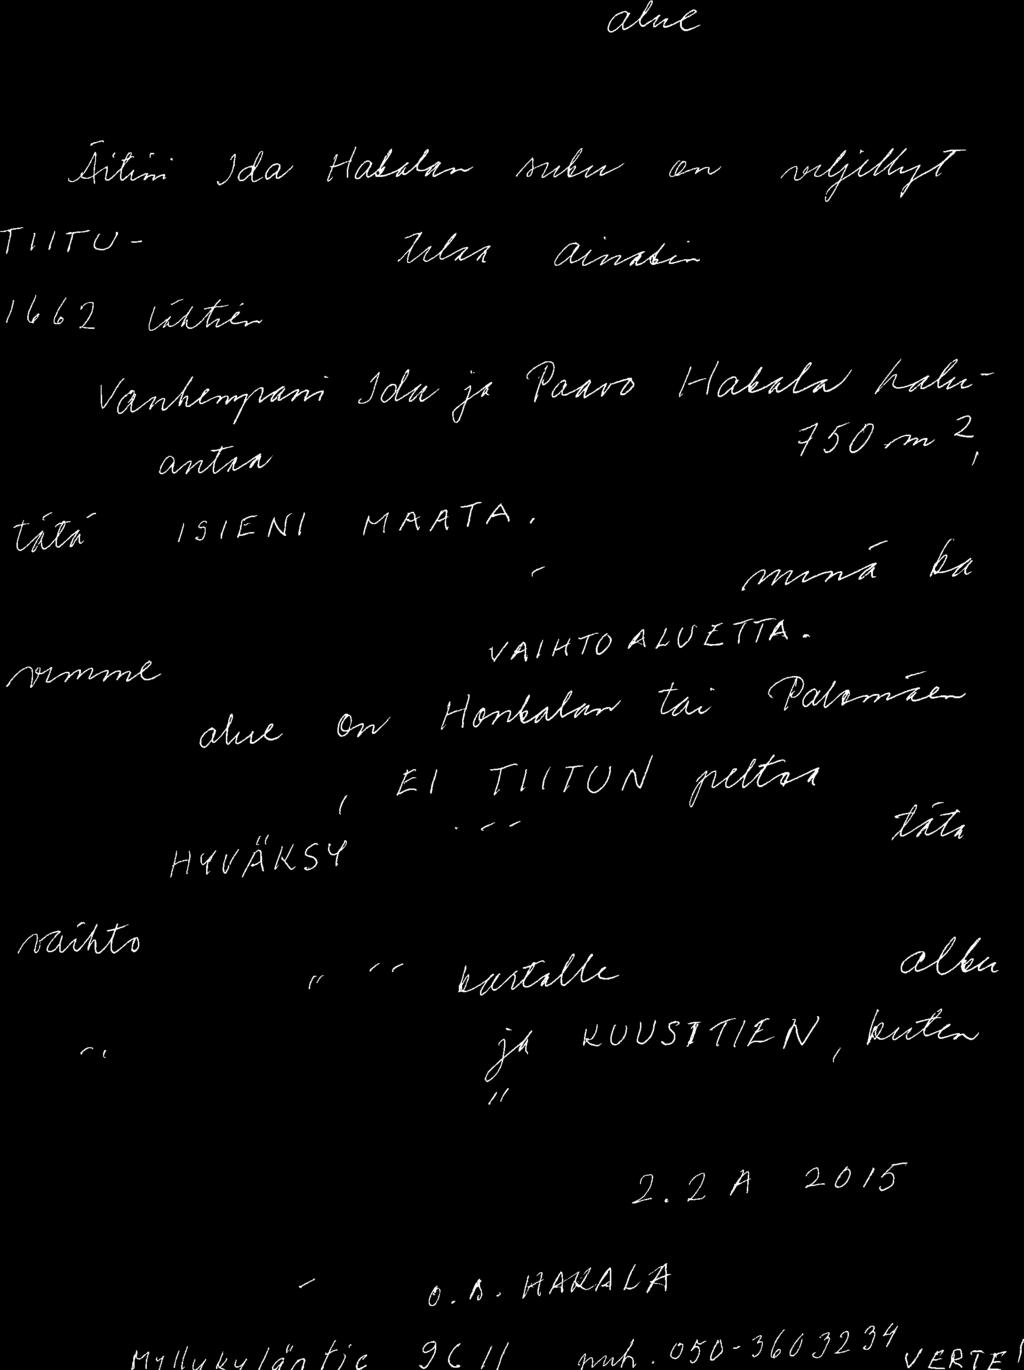 alue
Äitini Ida Hakalan suku on viljellyt
TIITU- tilaa ainakin
1662 lähtien
Vanhempani Ida ja Paavo Hakala halu-
antaa 750 m²,
tätä ISIENI MAATA.
minä ka
vimme VAIHTOALUETTA.
alue on Honkalan tai Palomäen
, EI TIITUN peltoa
HYVÄKSY tätä
vaihto
kartalle alku
ja KUUSITIEN, kuten
2.2 A 2015
O.B. HAKALA
Myllykyläntie 96 11 puh. 050-3603234